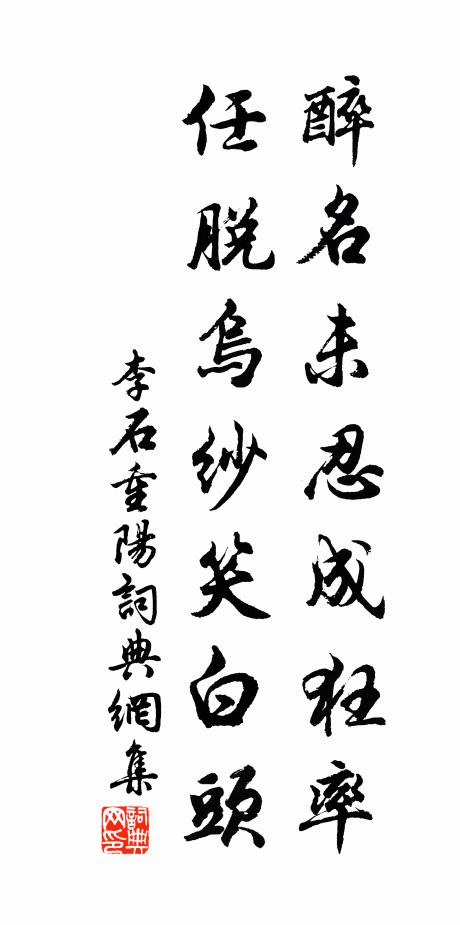 醉名未忍成狂率
任脱烏紗笑白頭
李石重陽詞典網集
詞典網印